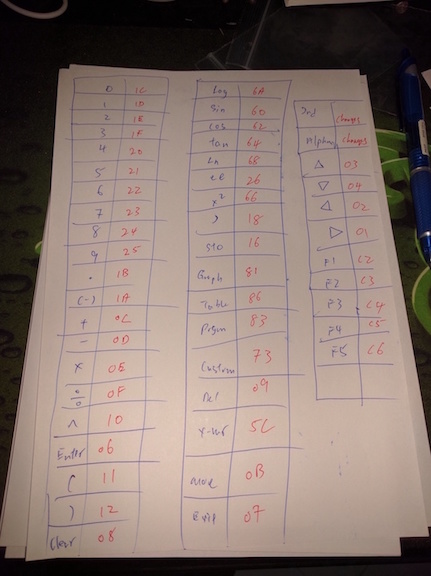 0 1C
1 1D
2 1E
3 1F
4 20
5 21
6 22
7 23
8 24
9 25
. 1B
(-) 1A
+ 0C
- 0D
× 0E
÷ 0F
^ 10
Enter 06
( 11
) 12
Clear 08
Log 6A
Sin 60
Cos 62
Tan 64
Ln 68
EE 26
x² 66
, 18
STO 16
Graph 81
Table 86
Prgm 83
Custom 73
Del 09
x-var 5C
more 0B
Exit 07
2nd changes
Alpha changes
△ 03
▽ 04
◁ 02
▷ 01
F1 C2
F2 C3
F3 C4
F4 C5
F5 C6